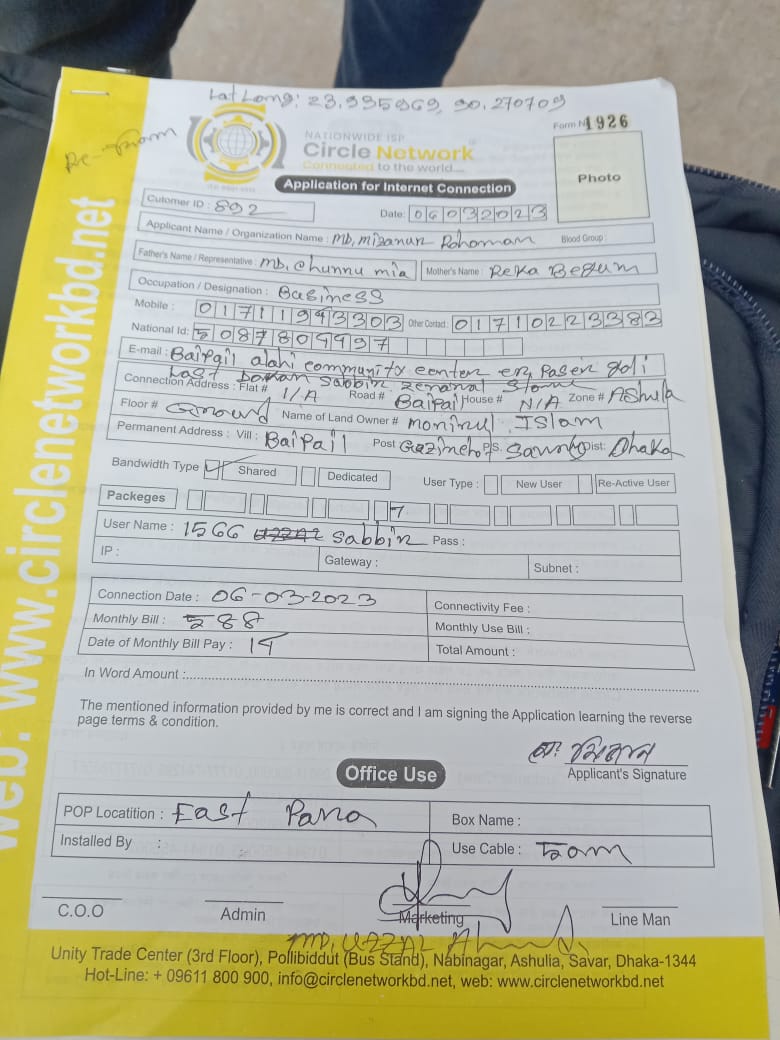 Lat Long: 23.935969, 90.270709
Form No 1926
Re-
NATIONWIDE ISP
Circle Network
Connected to the world...
Photo
Application for Internet Connection
Cutomer ID : 892
Date: 06032023
Applicant Name / Organization Name : MD, mizanur Rohoman Blood Group :
Father's Name / Representative : MD. chunnu mia Mother's Name : Reka Begum
Occupation / Designation : Business
Mobile : 01711943303 Other Contact : 01710223383
National Id: 5087809497
E-mail : Baipail alahi community center er Paser goli
Last Dokan Sabbir Zenaral Stour
Connection Address : Flat # 1/A Road # Baipail House # N/A Zone # Ashulia
Floor # Ground Name of Land Owner # monirul Islam
Permanent Address : Vill : Baipail Post Gazirchot P.S. Savar Dist: Dhaka
Bandwidth Type Shared Dedicated User Type : New User Re-Active User
Packeges 7
User Name : 1566 Sabbir Pass :
IP : Gateway : Subnet :
Connection Date : 06-03-2023 Connectivity Fee :
Monthly Bill : 588 Monthly Use Bill :
Date of Monthly Bill Pay : Total Amount :
In Word Amount :
The mentioned information provided by me is correct and I am signing the Application learning the reverse
page terms & condition.
মো: মিজান
Applicant's Signature
Office Use
POP Locatition : East Para Box Name :
Installed By : Use Cable :
C.O.O Admin Marketing Line Man
MD, UZZAL Ahmed
Unity Trade Center (3rd Floor), Pollibiddut (Bus Stand), Nabinagar, Ashulia, Savar, Dhaka-1344
Hot-Line: + 09611 800 900, info@circlenetworkbd.net, web: www.circlenetworkbd.net
web: www.circlenetworkbd.net